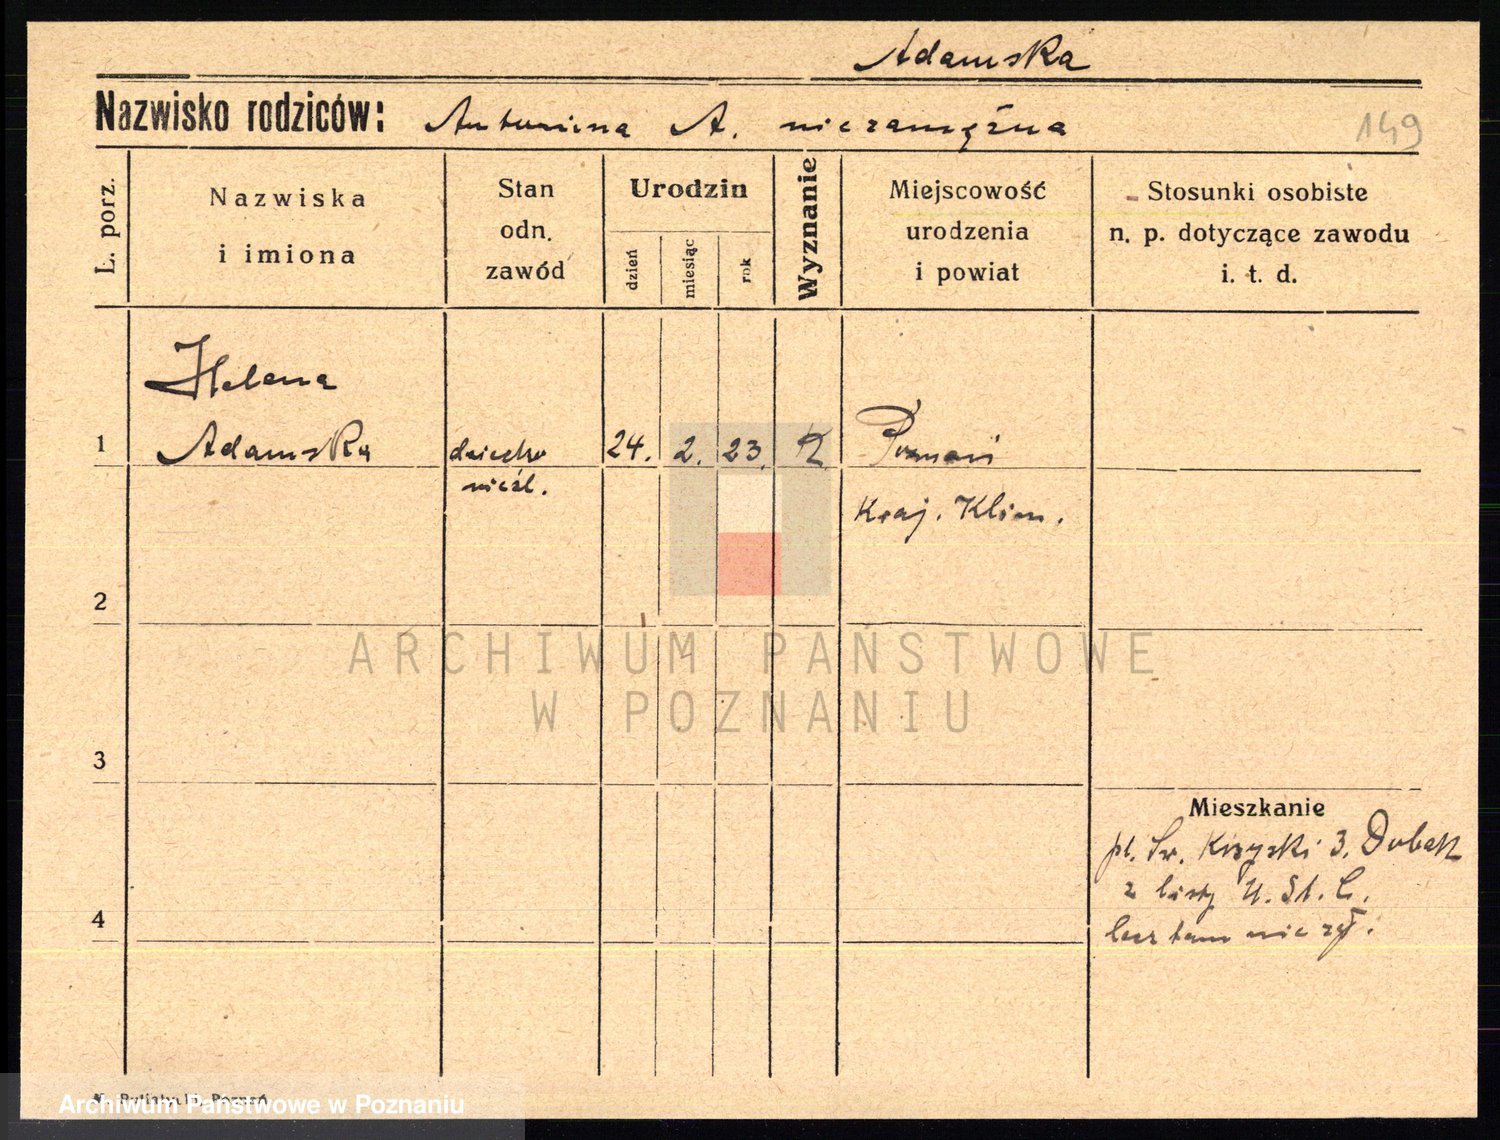 Adamska
Nazwisko rodziców: Antonina A. niezamężna
149
L. porz.
Nazwiska
i imiona
Stan
odn.
zawód
Urodzin
dzień
miesiąc
rok
Wyznanie
Miejscowość
urodzenia
i powiat
Stosunki osobiste
n. p. dotyczące zawodu
i. t. d.
Helena
1 Adamska dziecko 24. 2. 23. K Poznań
nieśl.
Kraj. Klin.
2
ARCHIWUM PAŃSTWOWE
W POZNANIU
3
Mieszkanie
pl. Św. Krzyski 3.
z listy U. St. C.
4
lecz tam nie zgł.
Poznań
Archiwum Państwowe w Poznaniu